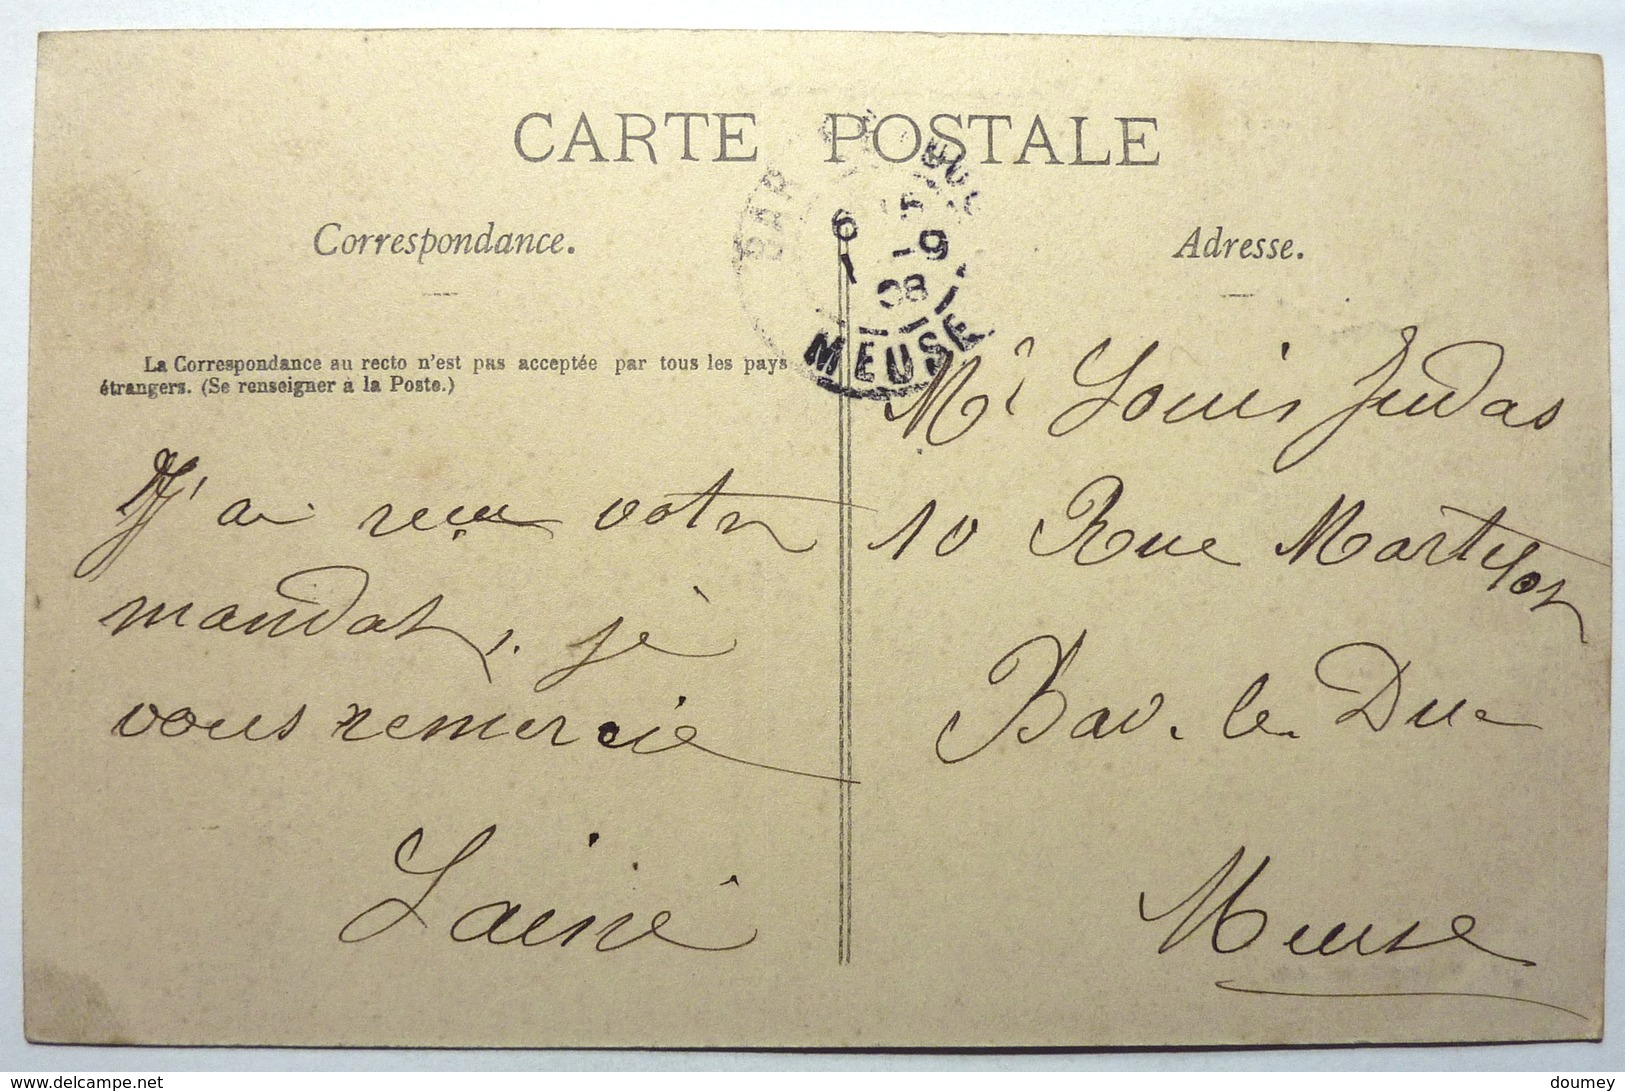 CARTE POSTALE
Correspondance.
La Correspondance au recto n'est pas acceptée par tous les pays
étrangers. (Se renseigner à la Poste.)
J'ai recu votre
mandat, je
vous remercie
Lainé
Adresse.
BAR
6
9
08
MEUSE
Mr Louis Judas
10 Rue
Bar-le-Duc
Meuse
www.delcampe.net
doumey